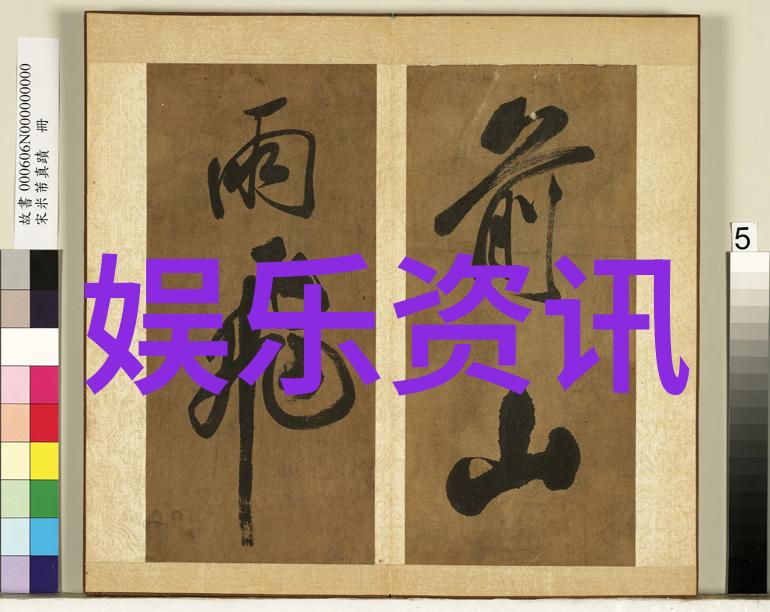 前山
雨飛
娱乐资讯
故書 000606N000000000
宋米芾真蹟 冊
5